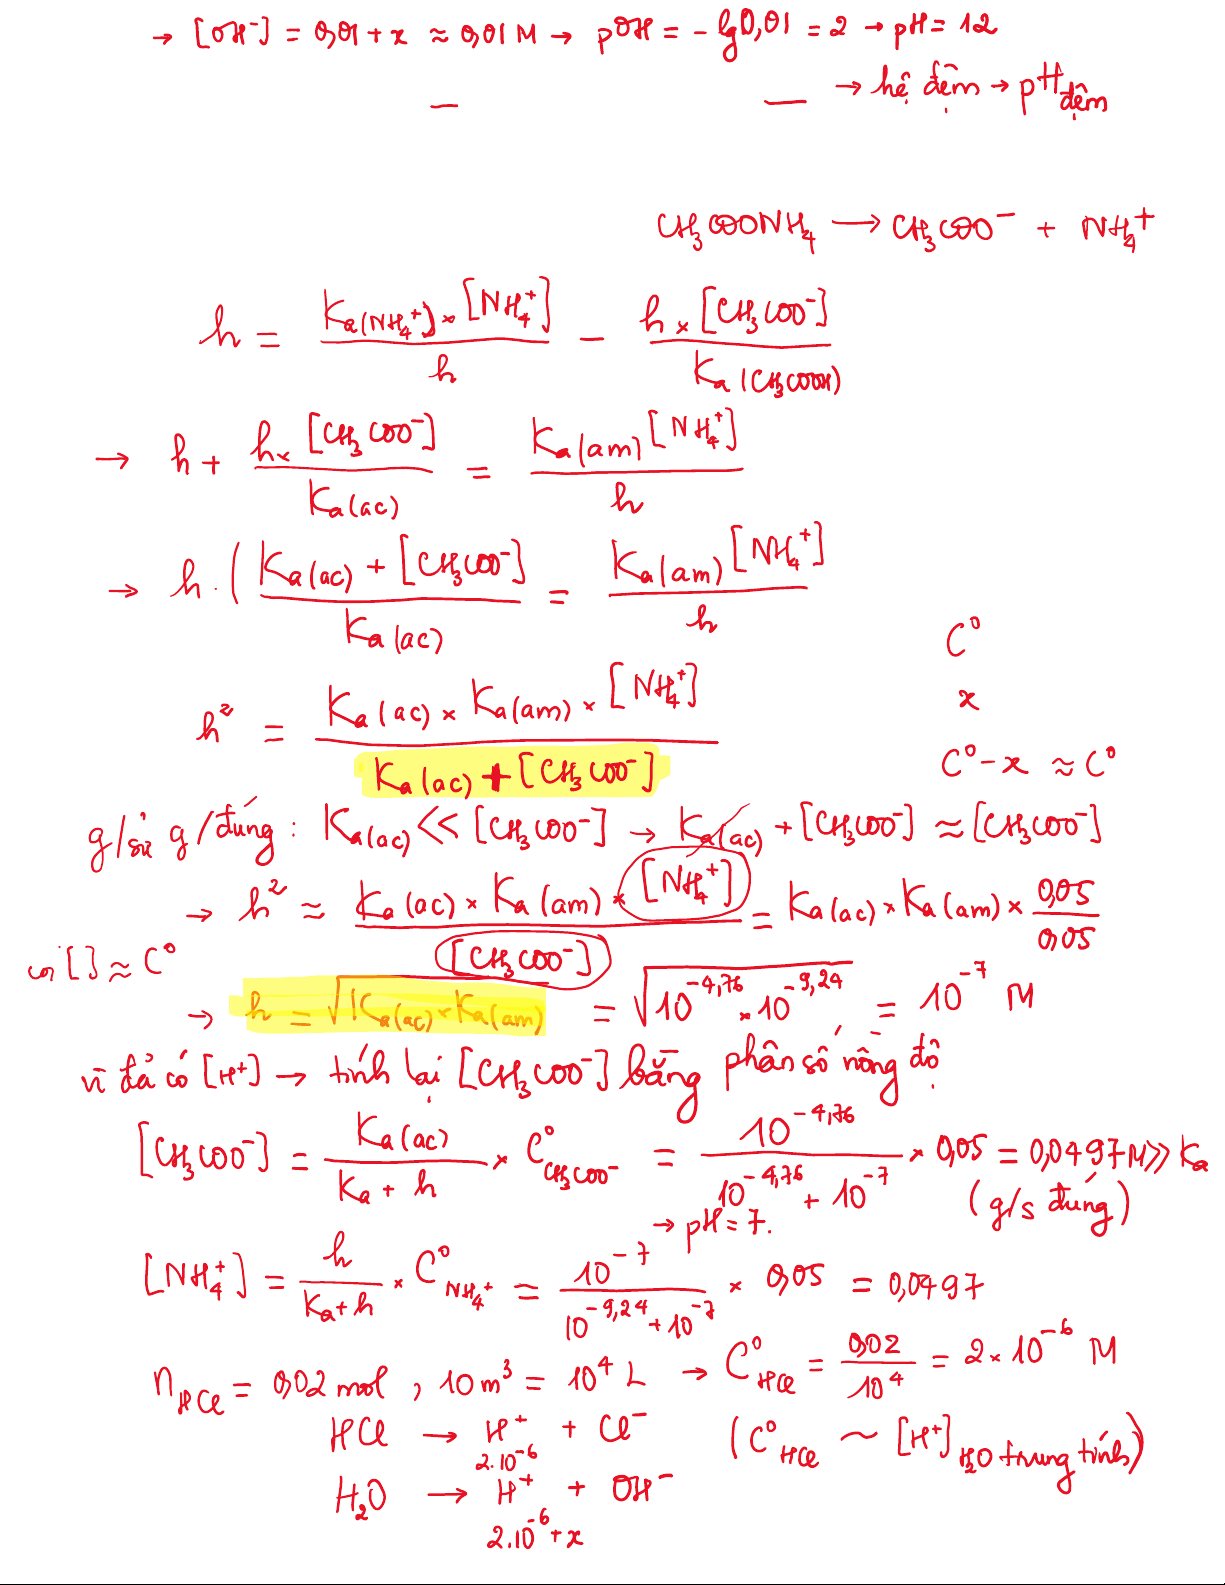 → [OH⁻] = 0,01 + x ≈ 0,01 M → pOH = - lg0,01 = 2 → pH = 12
→ hệ đệm → pH đệm
CH₃COONH₄ ⟶ CH₃COO⁻ + NH₄⁺
h = (Ka(NH₄⁺) × [NH₄⁺]) / h − (h × [CH₃COO⁻]) / Ka(CH₃COOH)
→ h + (h × [CH₃COO⁻]) / Ka(ac) = (Ka(am) [NH₄⁺]) / h
→ h · ( (Ka(ac) + [CH₃COO⁻]) / Ka(ac) = (Ka(am) [NH₄⁺]) / h
C⁰
x
C⁰ - x ≈ C⁰
h² = (Ka(ac) × Ka(am) × [NH₄⁺]) / (Ka(ac) + [CH₃COO⁻])
g/sử g/đúng : Ka(ac) << [CH₃COO⁻] → Ka(ac) + [CH₃COO⁻] ≈ [CH₃COO⁻]
→ h² ≈ (Ka(ac) × Ka(am) × [NH₄⁺]) / [CH₃COO⁻] = Ka(ac) × Ka(am) × 0,05 / 0,05
coi [ ] ≈ C⁰
→ h = √(Ka(ac) × Ka(am)) = √(10^-4,76 × 10^-9,24) = 10⁻⁷ M
vì đã có [H⁺] → tính lại [CH₃COO⁻] bằng phân số nồng độ
[CH₃COO⁻] = Ka(ac) / (Ka + h) × C⁰ CH₃COO⁻ = 10^-4,76 / (10^-4,76 + 10⁻⁷) × 0,05 = 0,0497 M >> Ka
(g/s đúng)
→ pH = 7.
[NH₄⁺] = h / (Ka + h) × C⁰ NH₄⁺ = 10⁻⁷ / (10^-9,24 + 10⁻⁷) × 0,05 = 0,0497
nHCl = 0,02 mol , 10 m³ = 10⁴ L → C⁰ HCl = 0,02 / 10⁴ = 2 × 10⁻⁶ M
HCl ⟶ H⁺ + Cl⁻ (C⁰ HCl ~ [H⁺] H₂O trung tính)
2.10⁻⁶
H₂O ⟶ H⁺ + OH⁻
2.10⁻⁶ + x